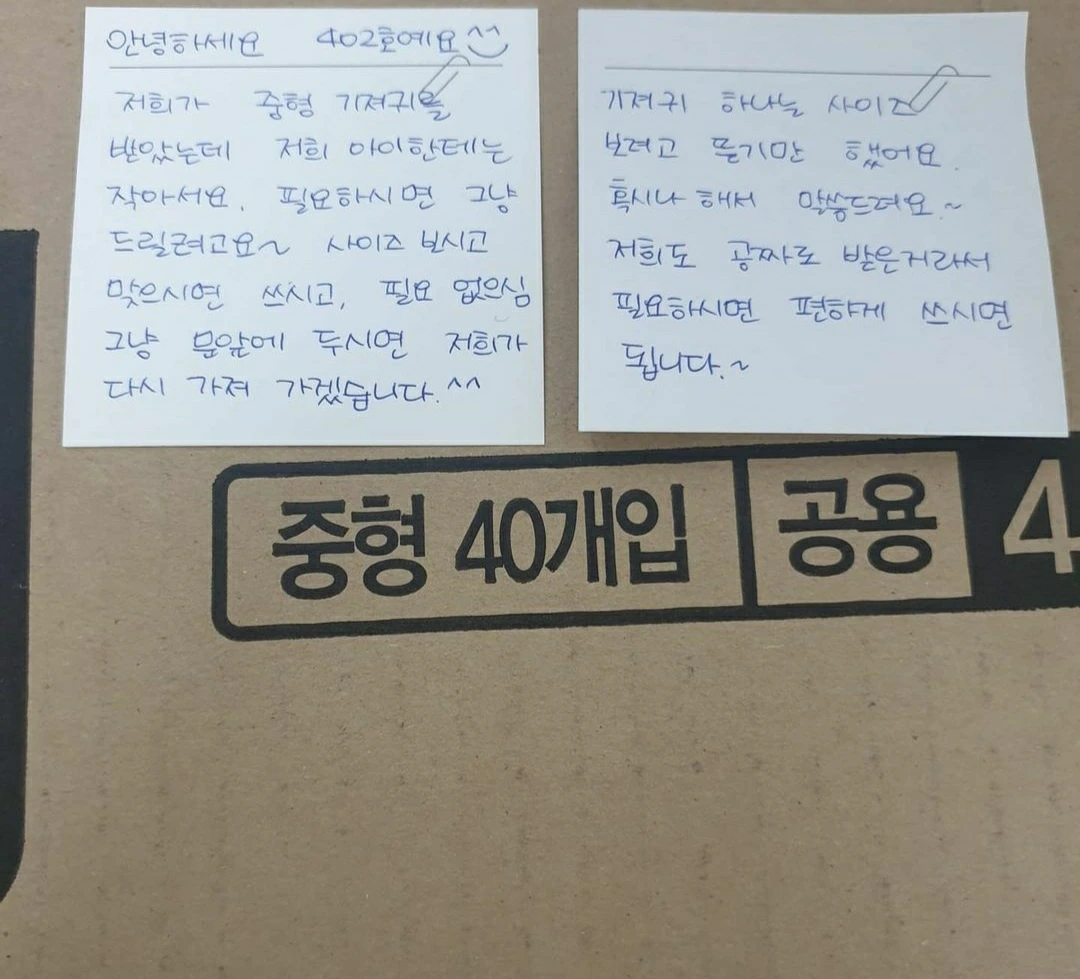 안녕하세요 402호예요^^
저희가 중형 기져귀를
받았는데 저희 아이한테는
작아서요. 필요하시면 그냥
드릴려고요~ 사이즈 보시고
맞으시면 쓰시고, 필요 없으심
그냥 문앞에 두시면 저희가
다시 가져 가겠습니다.^^
기져귀 하나는 사이즈
보려고 뜯기만 했어요.
혹시나 해서 말씀드려요.~
저희도 공짜로 받은거라서
필요하시면 편하게 쓰시면
됩니다.~
중형 40개입 공용 4